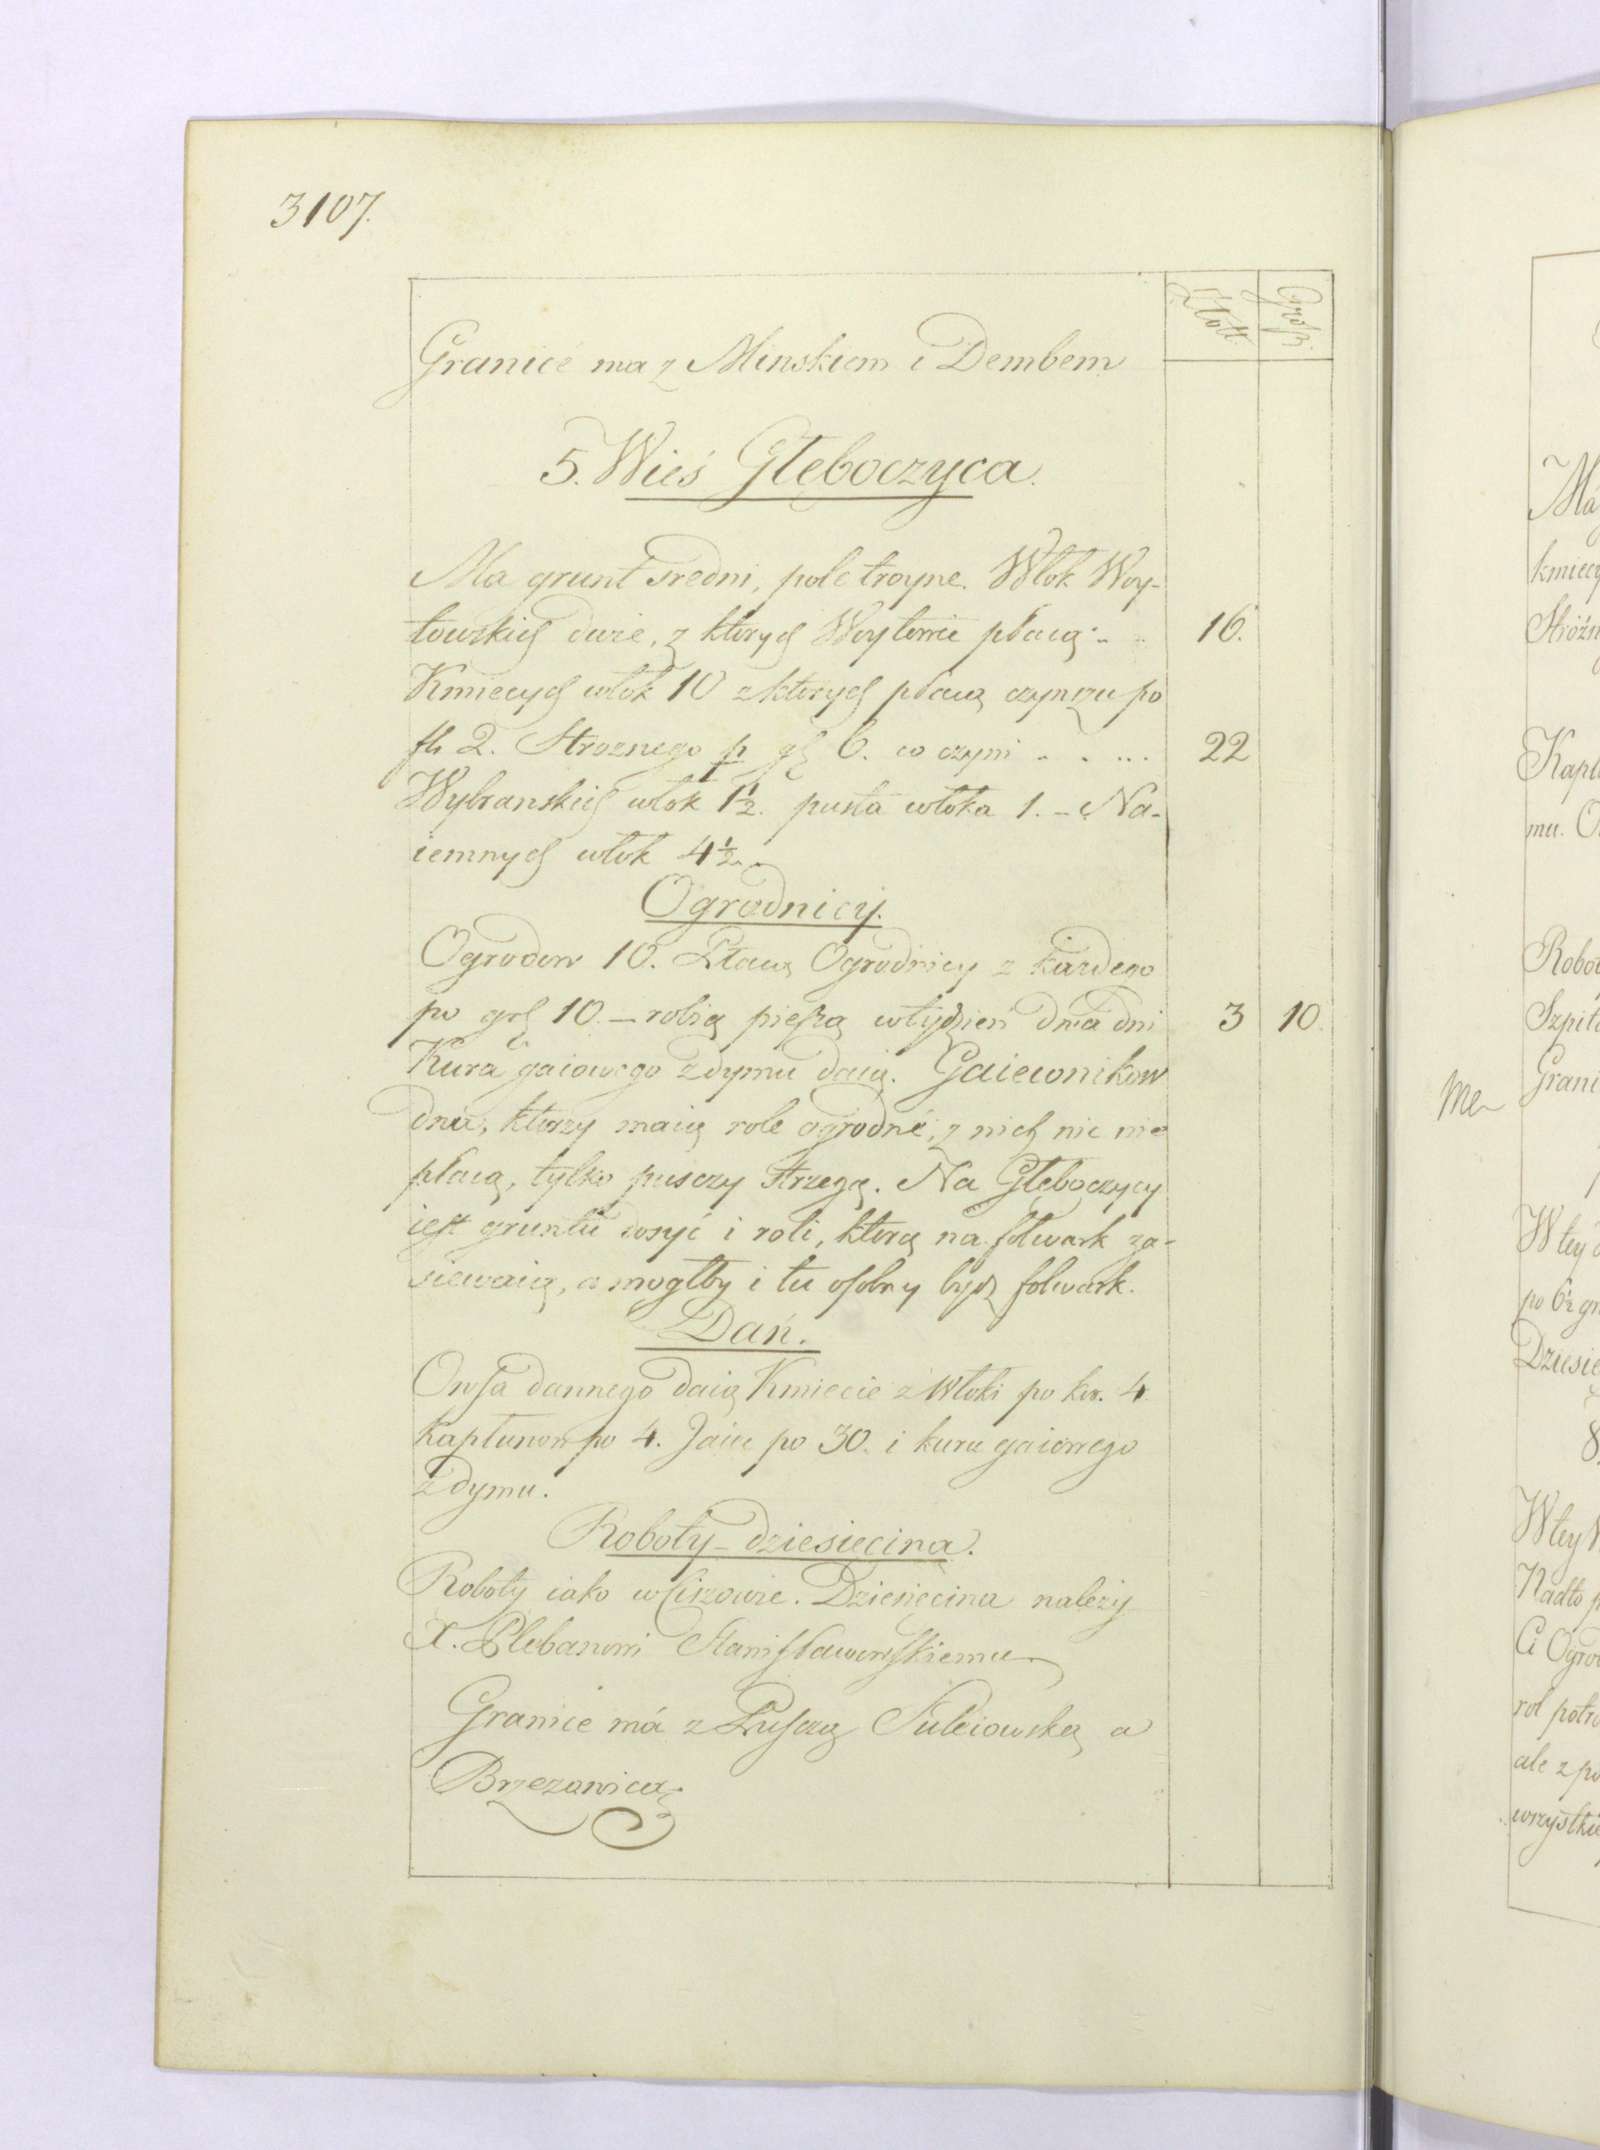 3107.
Złott. Grosz.
Granice ma z Minskiem i Dembem
5. Wieś Głęboczyca.
Ma grunt sredni, pole troyne. Włok Woy-
towskich dwie, z ktorych Woytowie płacą 16.
Kmiecych włok 10 z ktorych płacą czynszu po
fl. 2. Stroznego p. gr 6. co czyni 22
Wybranskich włok 1½. pusta włoka 1. – Na-
iemnych włok 4½.
Ogrodnicy.
Ogrodow 10. Płacą Ogrodnicy z każdego
po grs 10. – robią pieszą w tydzień dwa dni 3 10.
Kura gaiowego z dymu daią. Gaiewnikow
dwu, ktorzy maią role ogrodne, z nich nic nie
płacą, tylko pusczy strzegą. Na Głęboczycy
iest gruntu dosyć i roli, ktorą na folwark za-
siewaią, a mogłby i tu osobny bydz folwark.
Dań.
Owsa dannego daią Kmiecie z włoki po kor. 4.
Kapłunow po 4. Jaiu po 30. i kuru gaiowego
z dymu.
Roboty – dziesięcina.
Roboty iako w Ciszowie. Dziesięcina należy
X. Plebanowi Stanisławowskiemu
Granice má z Pusczą Suleiowską a
Brzezawicą
Má
kmiecy
Stróżn
Kapł
mu. O
Robo
Szpit
Grani
Me
W tey
po 6½ gr
Dziesię
8.
W tey
Nadto p
Ci Ogro
rol potr
ale z po
wszystki